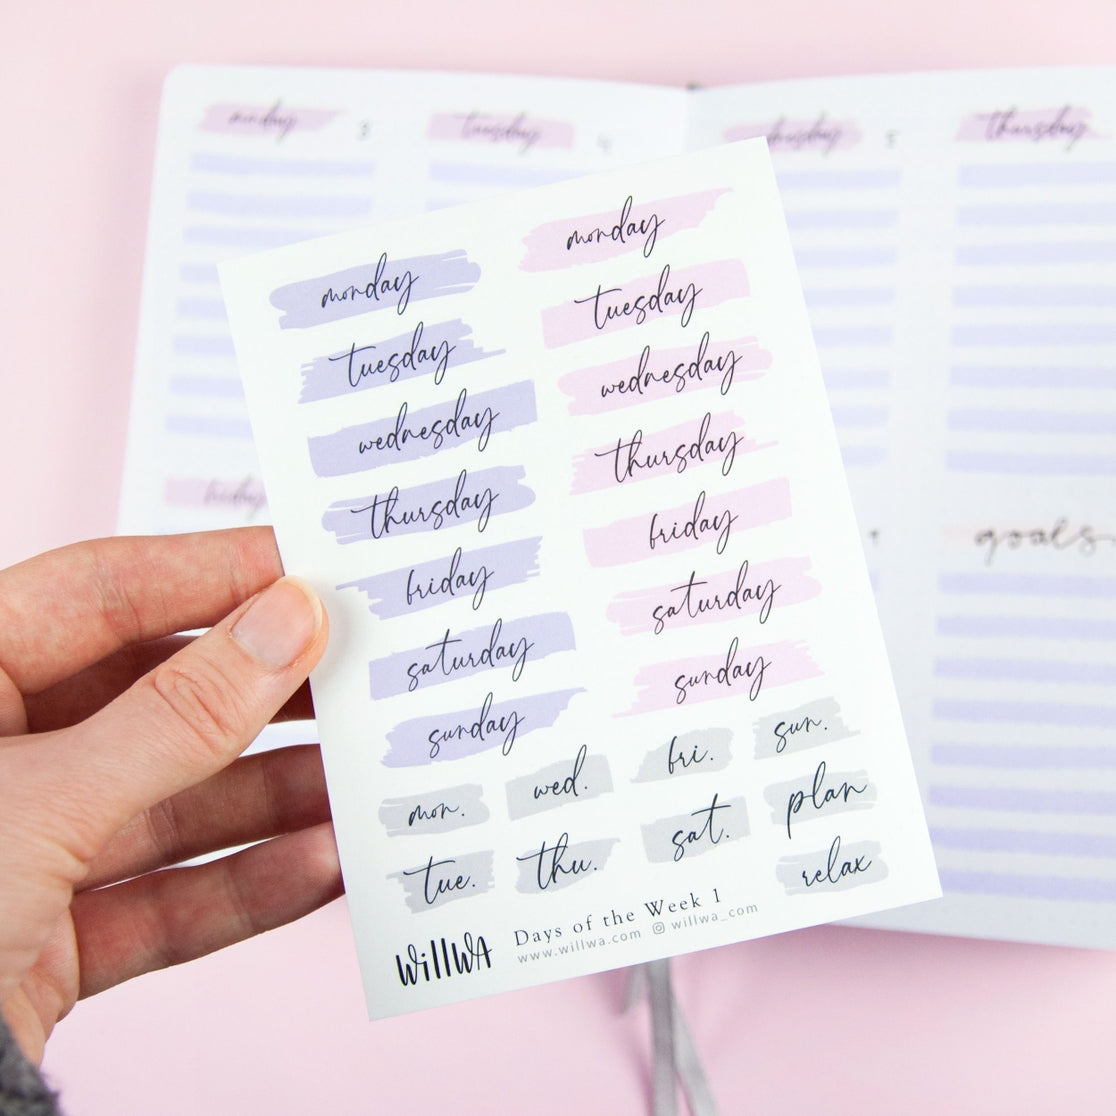 monday
3
tuesday
4
5
thursday
friday
goals
monday
tuesday
wednesday
thursday
friday
saturday
sunday
monday
tuesday
wednesday
thursday
friday
saturday
sunday
mon.
wed.
fri.
sun.
tue.
thu.
sat.
plan
relax
WillWA
Days of the Week 1
www.willwa.com willwa_com